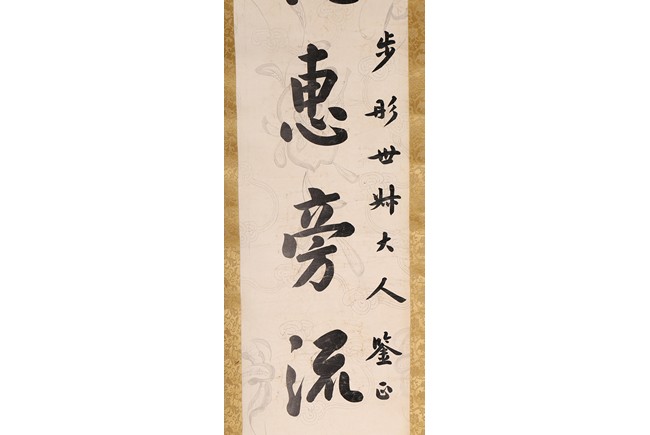 步彤世叔大人鑒正
惠旁流